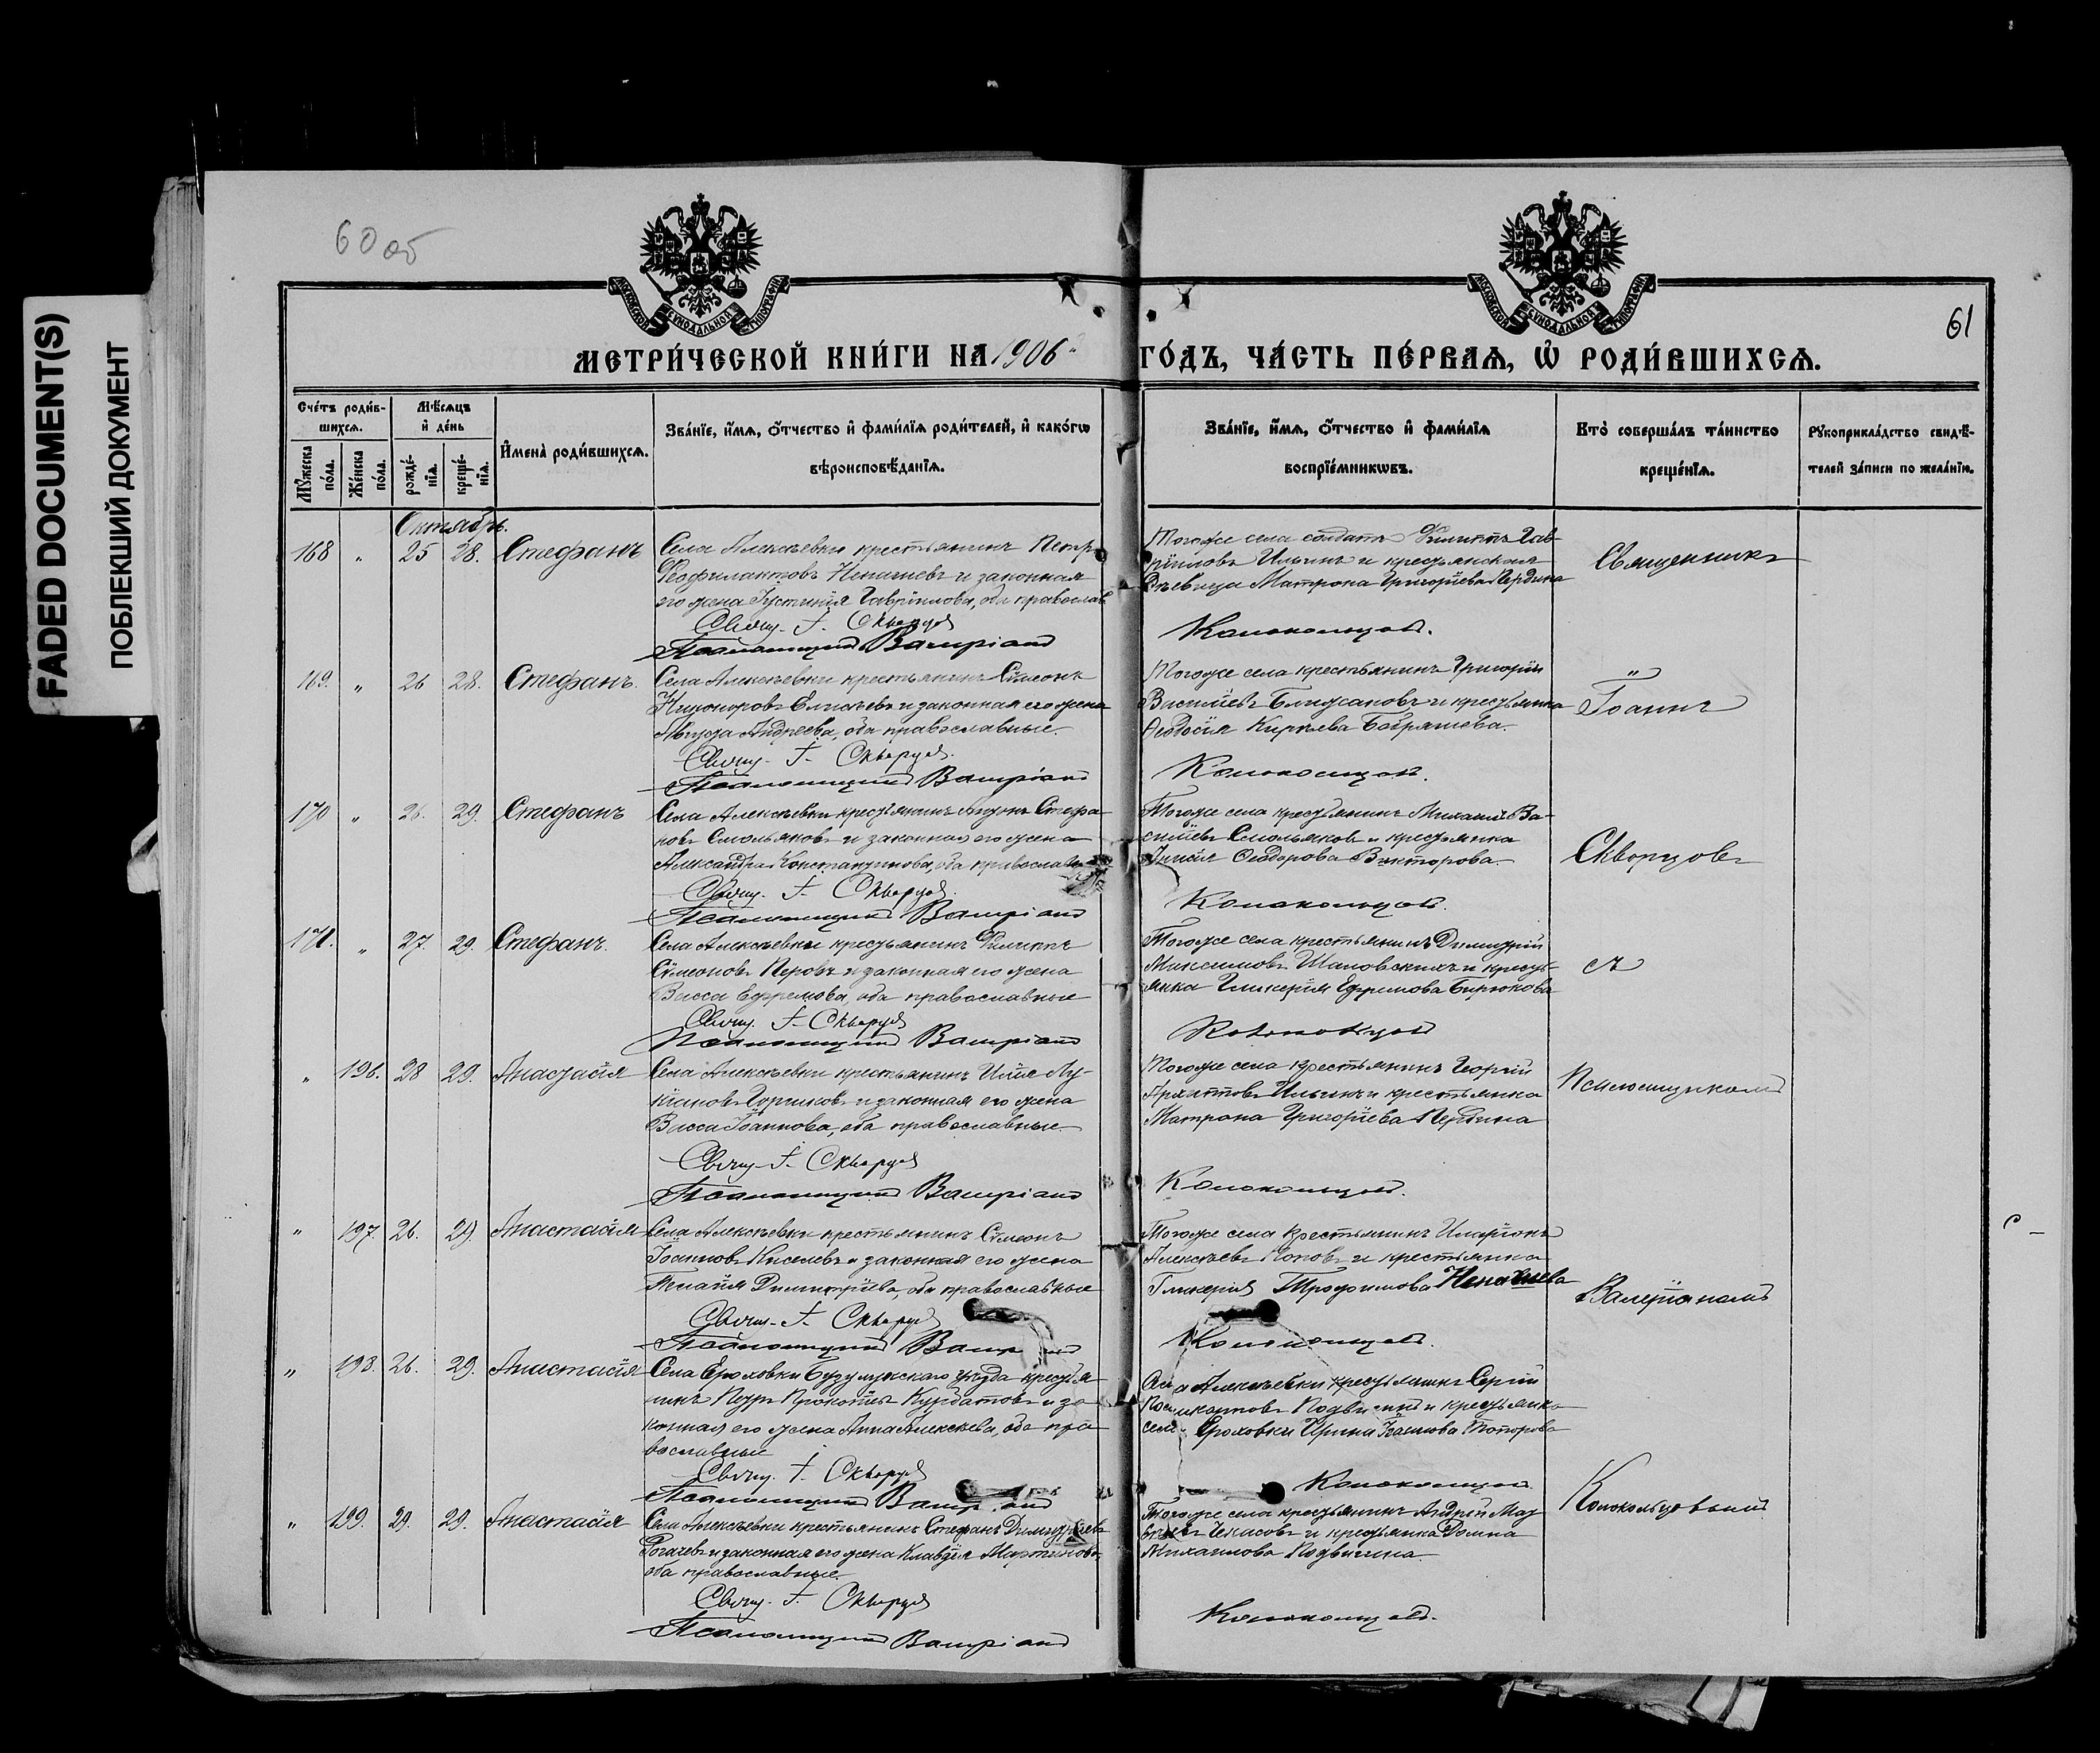 FADED DOCUMENT(S)
ПОБЛЕКШИЙ ДОКУМЕНТ
60 об
61
МОСКОВСКОЙ СѴНОДАЛЬНОЙ ТИПОГРАФІИ
МОСКОВСКОЙ СѴНОДАЛЬНОЙ ТИПОГРАФІИ
МЕТРИ́ЧЕСКОЙ КНИ́ГИ НА 1906 ГО́ДЪ, ЧА́СТЬ ПЕ́РВАЯ, Ѡ РОДИ́ВШИХСЯ.
Сче́тъ роди́в-
шихся.
Мꙋ́жеска по́ла.
Же́нска по́ла.
Мѣ́сяцъ
и де́нь
рожде́-
нїя.
креще́-
нїя.
Имена̀ роди́вшихся.
Зва́нїе, и́мя, ѻ́тчество и фами́лїя роди́телей, и како́гѡ
вѣроисповѣ́данїя.
Зва́нїе, и́мя, ѻ́тчество и фами́лїя
воспрїе́мникѡвъ.
Кто̀ соверша́лъ та́инство
креще́нїя.
Рꙋкоприкла́дство свидѣ́-
телей за́писи по жела́нїю.
Октябрь.
168 " 25 28. Стефанъ
Села Алексѣевки крестьянинъ Петръ
Феофилактовъ Ненашевъ и законная
его жена Іустинія Гавріилова, оба православ
Свящ. І. Скворцов
Псаломщикъ Валеріанъ Колокольцов.
Тогоже села солдатъ Филиппъ Гав-
ріиловъ Ильинъ и крестьянская
дѣвица Матрона Григоріева Пердина
Священникъ
169. " 26 28. Стефанъ.
Села Алексѣевки крестьянинъ Сѵмеонъ
Никифоровъ Елисѣевъ и законная его жена
Августа Андреева, оба православные.
Свящ. І. Скворцов
Псаломщикъ Валеріанъ Колокольцов.
Тогоже села крестьянинъ Григорій
Васильевъ Ближановъ и крестьянка
Ѳеодосія Кирѣева
"
Іоаннъ
170 " 26. 29. Стефанъ
Села Алексѣевки крестьянинъ Стефа-
новъ Смольяковъ и законная его жена
Александра Константинова, оба православные
Свящ. І. Скворцов.
Псаломщикъ Валеріанъ Колокольцов.
Тогоже села крестьянинъ Михаилъ Ва-
сильевъ Смольяковъ и крестьянка
Ѳеодорова Викторова.
Скворцовъ
171. " 27. 29. Стефанъ.
Села Алексѣевки крестьянинъ Филиппъ
Сѵмеоновъ Перовъ и законная его жена
Васса Ефремова, оба православные
Свящ. І. Скворцов
Псаломщикъ Валеріанъ Колокольцов
Тогоже села крестьянинъ Димитрій
Максимовъ Шаповскихъ и кресть-
янка Гликерія Ефимова Бирюкова
съ
" 196. 28 29. Анастасія
Села Алексѣевки крестьянинъ Илія Лу-
кіановъ Горшковъ и законная его жена
Васса Іоаннова, оба православные.
Свящ. І. Скворцов
Псаломщикъ Валеріанъ Колокольцов.
Тогоже села крестьянинъ Георгій
Архиповъ Ильинъ и крестьянка
Матрона Григоріева Пердина
Псаломщикомъ
" 197. 26. 29. Анастасія
Села Алексѣевки крестьянинъ Сѵмеонъ
Іоанновъ Киселевъ и законная его жена
Пелагія Димитріева, оба православные
Свящ. І. Скворцов
Псаломщикъ Валеріанъ Колокольцов.
Тогоже села крестьянинъ Иларіонъ
Алексѣевъ Поповъ и крестьянка
Гликерія Трофимова Ненашева
Валеріаномъ
" 198. 26. 29. Анастасія
Села Ероховки Бузулукскаго уѣзда крестья-
нинъ Петръ Прокопіевъ Курбатовъ и за-
конная его жена Анна Алексѣева, оба пра-
вославные
Свящ. І. Скворцов
Псаломщикъ Валеріанъ Колокольцов
Села Алексѣевки крестьянинъ Сергій
Подвигинъ и крестьянка
села Ероховки Ирина Іоаннова Топорова
Колокольцовымъ
" 199. 29. 29. Анастасія
Села Алексѣевки крестьянинъ Стефанъ Димитріевъ
Рогачевъ и законная его жена Клавдія Мартинова,
оба православные.
Свящ. І. Скворцов
Псаломщикъ Валеріанъ Колокольцов.
Тогоже села крестьянинъ Андрей Мат-
вѣевъ Чекасовъ и крестьянка Домна
Михаилова Подвигина